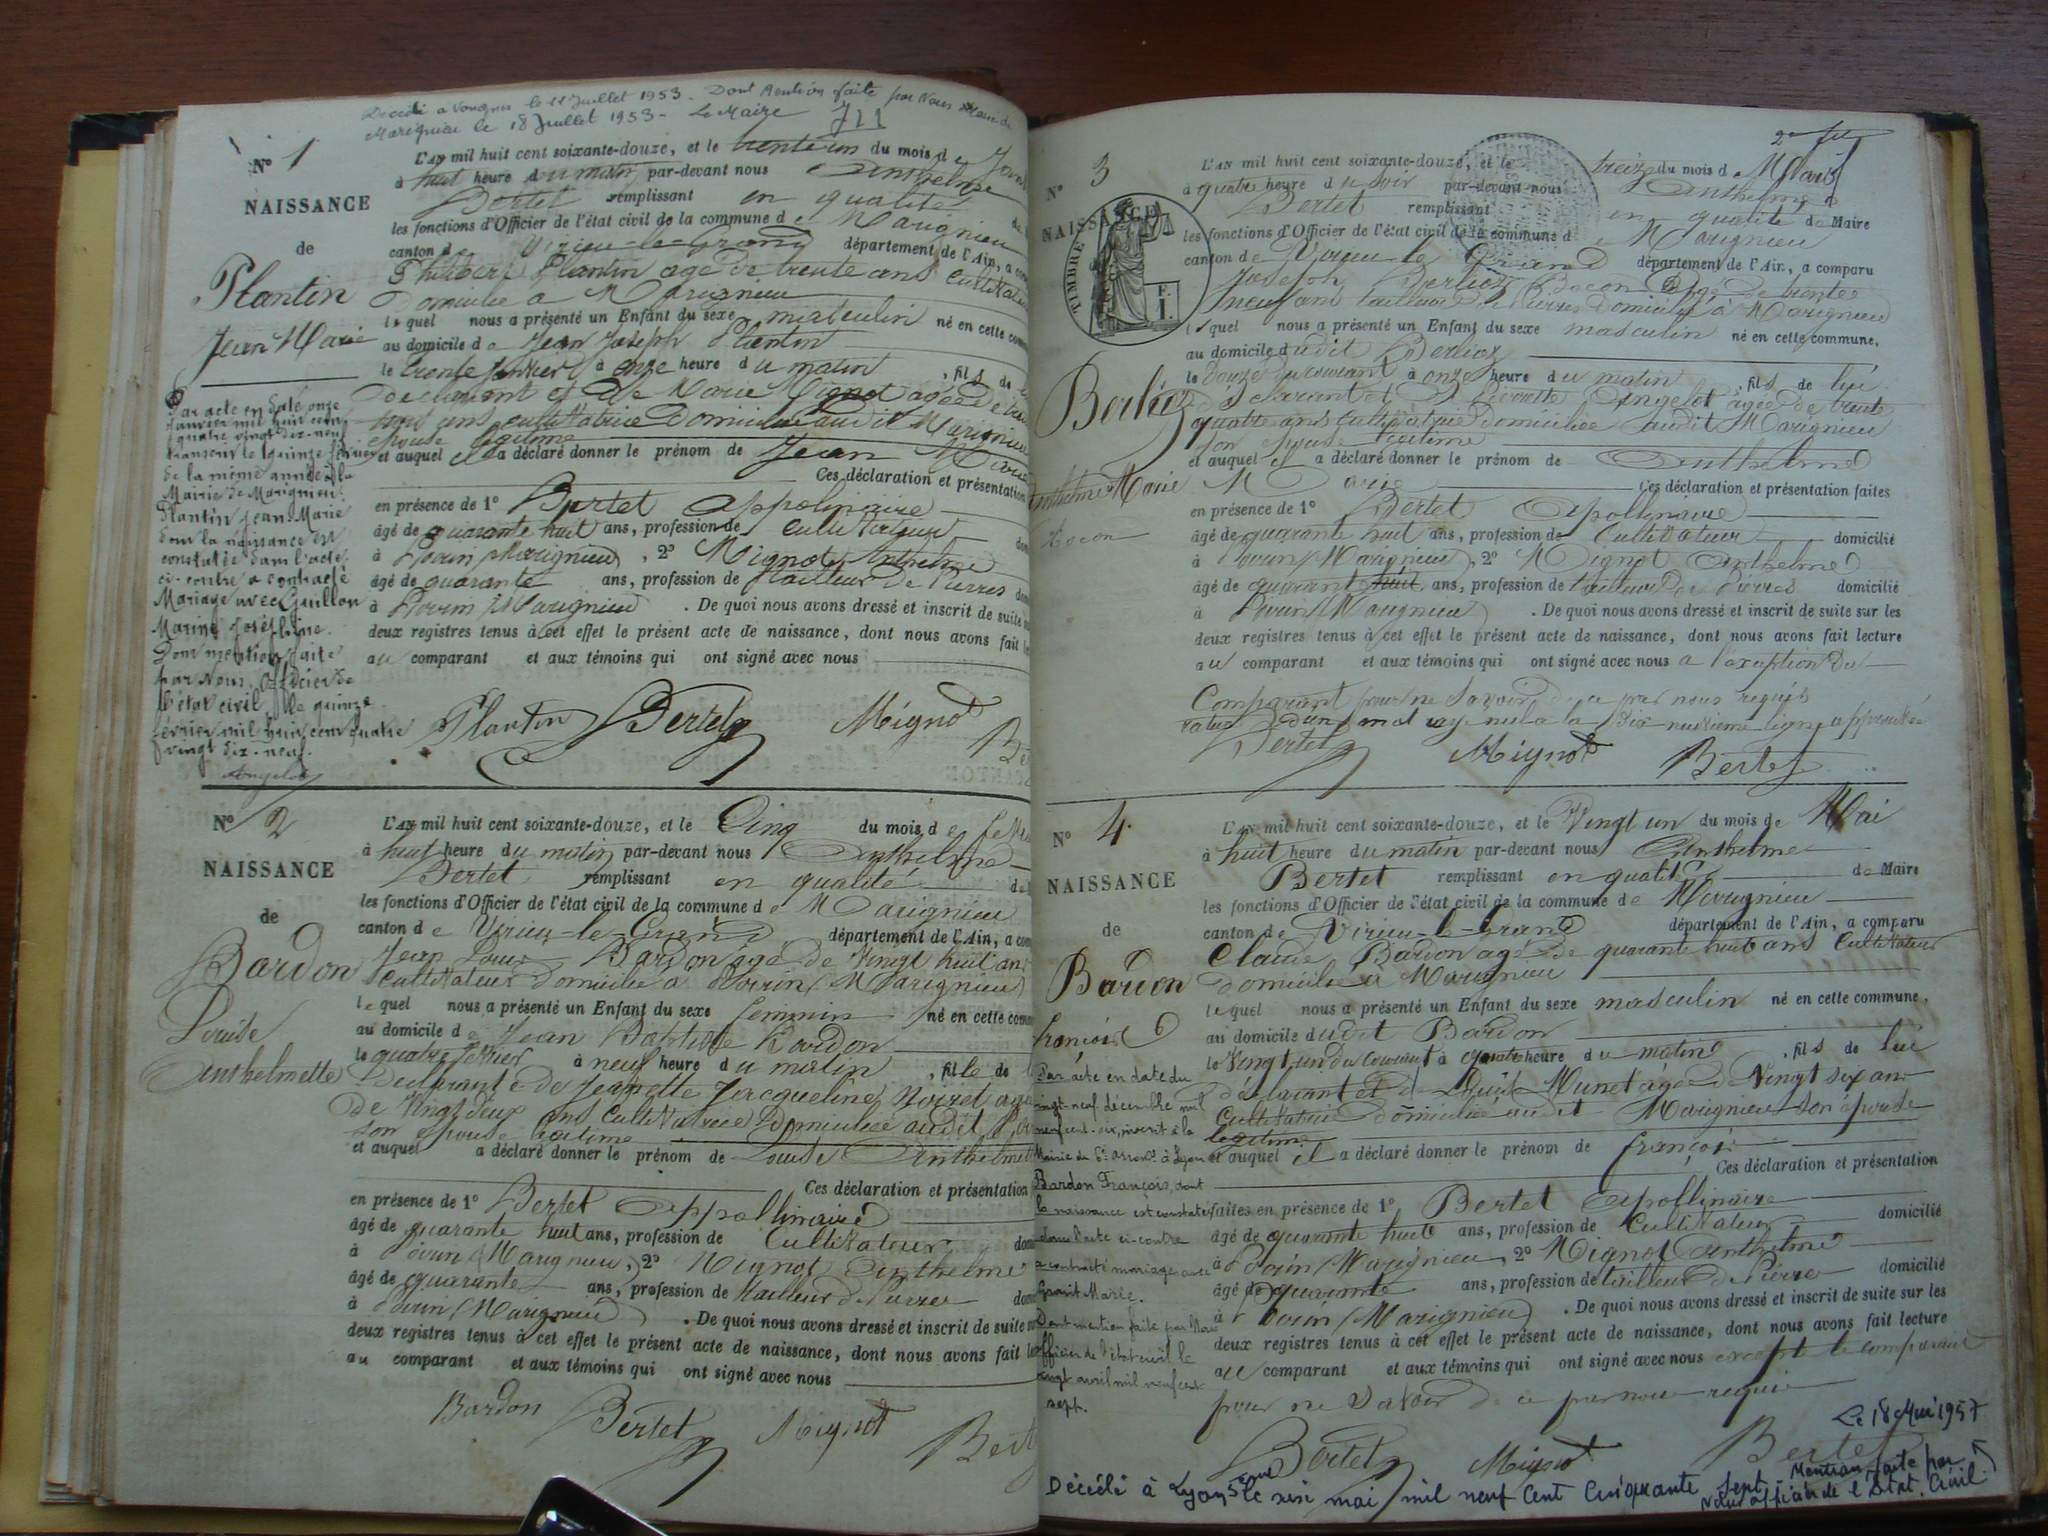 Décédé à Vongnes le 11 Juillet 1953. Dont Mention faite par Nous Maire de
Marignieu le 18 Juillet 1953 - Le Maire
N° 1
NAISSANCE
de
Plantin
Jean Marie
Par acte en date onze
Janvier mil huit cent
quatre vingt dix-neuf
transcrit le quinze février
de la même année à la
Mairie de Marignieu.
Plantin Jean-Marie
dont la naissance est
constatée dans l'acte
ci-contre a contracté
Mariage avec Guillon
Marine Joséphine.
Dont mention faite
par Nous, Officier de
l'état civil, le quinze
février mil huit cent quatre
vingt dix-neuf.
Angelot
L'AN mil huit cent soixante-douze, et le trente un du mois de Janv
à huit heure du matin par-devant nous Anthelme
Bertet remplissant en qualité de
les fonctions d'Officier de l'état civil de la commune de Marignieu
canton de Virieu-le-Grand département de l'Ain, a com
Philibert Plantin agé de trente ans Cultivateur
domicilié à Marignieu
lequel nous a présenté un Enfant du sexe masculin né en cette com
au domicile de Jean Joseph Plantin
le trente Janvier à onze heure du matin, fils de
declarant et de Marie Mignot agée de
ans cultivatrice domiciliée audit Marignieu
epouse légitime
et auquel il a déclaré donner le prénom de Jean Marie
Ces déclaration et présentation
en présence de 1° Bertet Appolinaire
âgé de quarante huit ans, profession de Cultivateur dom
à Poirin (Marignieu), 2° Mignot Anthelme
âgé de quarante ans, profession de tailleur de Pierres dom
à Poirin (Marignieu). De quoi nous avons dressé et inscrit de suite
deux registres tenus à cet effet le présent acte de naissance, dont nous avons fait le
au comparant et aux témoins qui ont signé avec nous
Plantin Bertet Mignot Be
N° 2
NAISSANCE
de
Bardon
Louise
Anthelmette
L'AN mil huit cent soixante-douze, et le Cinq du mois de fevri
à huit heure du matin par-devant nous Anthelme
Bertet remplissant en qualité de
les fonctions d'Officier de l'état civil de la commune de Marignieu
canton de Virieu-le-Grand département de l'Ain, a com
Jean Louis Bardon agé de Vingt huit ans
Cultivateur domicilié à Poirin (Marignieu)
lequel nous a présenté un Enfant du sexe feminin né en cette com
au domicile de Jean Baptiste Bardon
le quatre fevrier à neuf heure du matin, fille de
Declarant & de Jeannette Jacqueline Noizet agée
de Vingt deux ans Cultivatrice Domiciliée audit
son epouse legitime
et auquel a déclaré donner le prénom de Louise Anthelmet
Ces déclaration et présentation
en présence de 1° Bertet Appollinaire
âgé de quarante huit ans, profession de Cultivateur dom
à Poirin (Marignieu), 2° Mignot Anthelme
âgé de quarante ans, profession de tailleur de Pierres dom
à Poirin (Marignieu). De quoi nous avons dressé et inscrit de suite
deux registres tenus à cet effet le présent acte de naissance, dont nous avons fait le
au comparant et aux témoins qui ont signé avec nous
Bardon Bertet Mignot Bert
2e
N° 3
NAISSANCE
TIMBRE
F.
1.
Berlioz
Anthelme Marie
L'AN mil huit cent soixante-douze, et le treize du mois de Mars
à quatre heure du soir par-devant nous Anthelme
Bertet remplissant en qualité de Maire
les fonctions d'Officier de l'état civil de la commune de Marignieu
canton de Virieu le Grand département de l'Ain, a comparu
Joseph Berlioz agé de trente
neuf ans tailleur de Pierres domicilié à Marignieu
lequel nous a présenté un Enfant du sexe masculin né en cette commune,
au domicile dudit Berlioz
le douze du courant à onze heure du matin, fils de lui
declarant et de Pierrette Angelot agée de trente
quatre ans cultivatrice domiciliée audit Marignieu
son epouse legitime
et auquel il a déclaré donner le prénom de Anthelme
Marie Ces déclaration et présentation faites
en présence de 1° Bertet Apollinaire
âgé de quarante huit ans, profession de Cultivateur domicilié
à Poirin (Marignieu), 2° Mignot Anthelme
âgé de quarante huit ans, profession de tailleur de Pierres domicilié
à Poirin (Marignieu). De quoi nous avons dressé et inscrit de suite sur les
deux registres tenus à cet effet le présent acte de naissance, dont nous avons fait lecture
au comparant et aux témoins qui ont signé avec nous a l'exception du
Comparant pour ne savoir de ce par nous requis
ratur d'un mot rayé nul à la dix neuvieme ligne approuvée
Bertet Mignot Bertet
N° 4
NAISSANCE
de
Bardon
françois
Par acte en date du
vingt-neuf décembre mil
neuf cent-six, inscrit à la
Mairie du arront à Lyon
Bardon François, dont
la naissance est constatée
dans l'acte ci-contre
a contracté mariage avec
Marie.
Dont mention faite par Nous
officier de l'état civil le
vingt avril mil neuf cent
sept.
L'AN mil huit cent soixante-douze, et le Vingt un du mois de Mai
à huit heure du matin par-devant nous Anthelme
Bertet remplissant en qualité de Maire
les fonctions d'Officier de l'état civil de la commune de Marignieu
canton de Virieu-le-Grand département de l'Ain, a comparu
Claude Bardon agé de quarante huit ans Cultivateur
domicilié à Marignieu
lequel nous a présenté un Enfant du sexe masculin né en cette commune,
au domicile dudit Bardon
le Vingt un du Courant à quatre heure du matin, fils de lui
déclarant et de Munet agée de Vingt six ans
Cultivatrice domiciliée audit Marignieu son épouse
legitime
et auquel il a déclaré donner le prénom de françois
Ces déclaration et présentation
faites en présence de 1° Bertet Apollinaire
âgé de quarante huit ans, profession de Cultivateur domicilié
à Poirin (Marignieu, 2° Mignot Anthelme
âgé de quarante ans, profession de tailleur de Pierre domicilié
à Poirin (Marignieu). De quoi nous avons dressé et inscrit de suite sur les
deux registres tenus à cet effet le présent acte de naissance, dont nous avons fait lecture
au comparant et aux témoins qui ont signé avec nous excepté le comparant
pour ne Savoir de ce par nous requis
Bertet Mignot Bertet
Le 18 Mai 1957
Décédé à Lyon 5eme le seize mai mil neuf Cent Cinquante Sept - Mention faite par
Nous officier de l'Etat Civil.